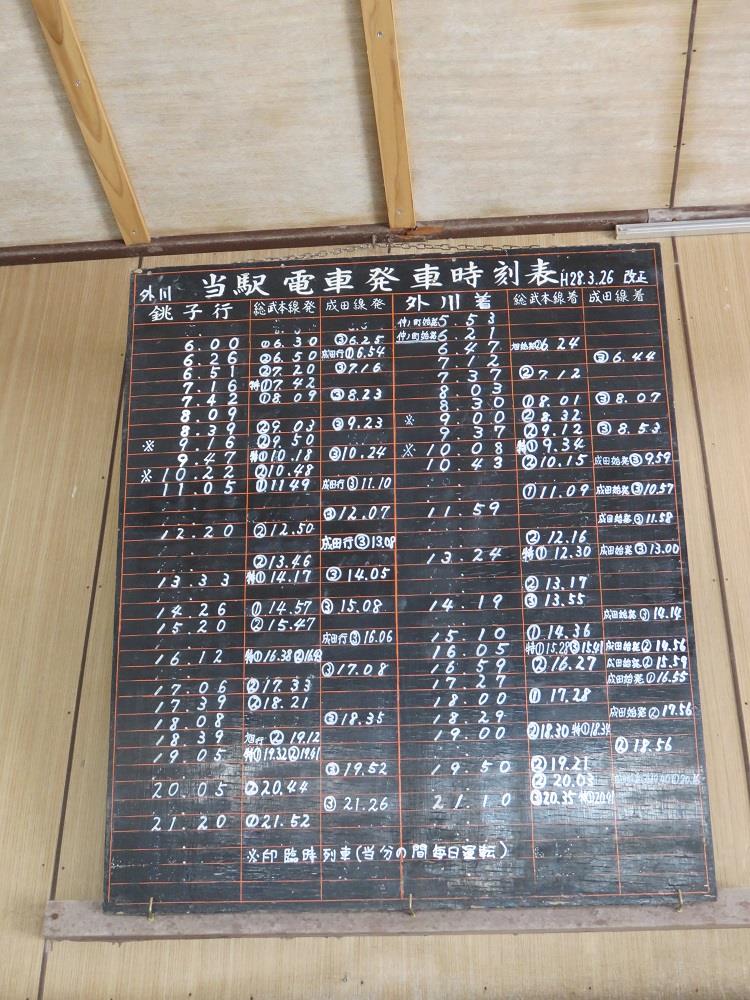 外川 当駅電車発車時刻表 H28.3.26 改正
銚子行 総武本線発 成田線発 外川着 総武本線着 成田線着
仲ノ町始発 5.53
6.00 ①6.30 ③6.25 仲ノ町始発 6.21
6.26 ②6.50 成田行①6.54 6.47 ②6.24
6.51 ②7.20 ③7.16 7.12 ③6.44
7.16 特①7.42 7.37 ②7.12
7.42 ①8.09 ③8.23 8.03
8.09 8.30 ①8.01 ③8.07
8.39 ②9.03 ③9.23 ※ 9.00 ②8.32
※ 9.16 ②9.50 9.37 ②9.12 ③8.53
9.47 特①10.18 ③10.24 ※ 10.08 特①9.34
※ 10.22 ②10.48 10.43 ②10.15 成田始発③9.59
11.05 ①11.49 成田行③11.10
①11.09 成田始発③10.57
③12.07 11.59
12.20 ②12.50 成田始発③11.58
成田行③13.08 ②12.16
②13.46 13.24 特①12.30 成田始発③13.00
13.33 特①14.17 ③14.05
②13.17
14.26 ①14.57 ③15.08 14.19 ③13.55
15.20 ②15.47 成田始発③14.14
成田行③16.06 15.10 ①14.36
16.12 特①16.38 16.05 特①15.28③15.41 成田始発②14.56
③17.08 16.59 ②16.27 成田始発②15.59
17.06 ②17.33 17.27 成田始発①16.55
17.39 ②18.21 18.00 ①17.28
18.08 ③18.35 18.29 成田始発②17.56
18.39 旭行②19.12 19.00 ②18.30特①18.34
19.05 特①19.32②19.41 ②18.56
③19.52 19.50 ②19.21
20.05 ②20.44 ②20.03
③21.26 21.10 ③20.35
21.20 ②21.52
※印臨時列車(当分の間毎日運転)